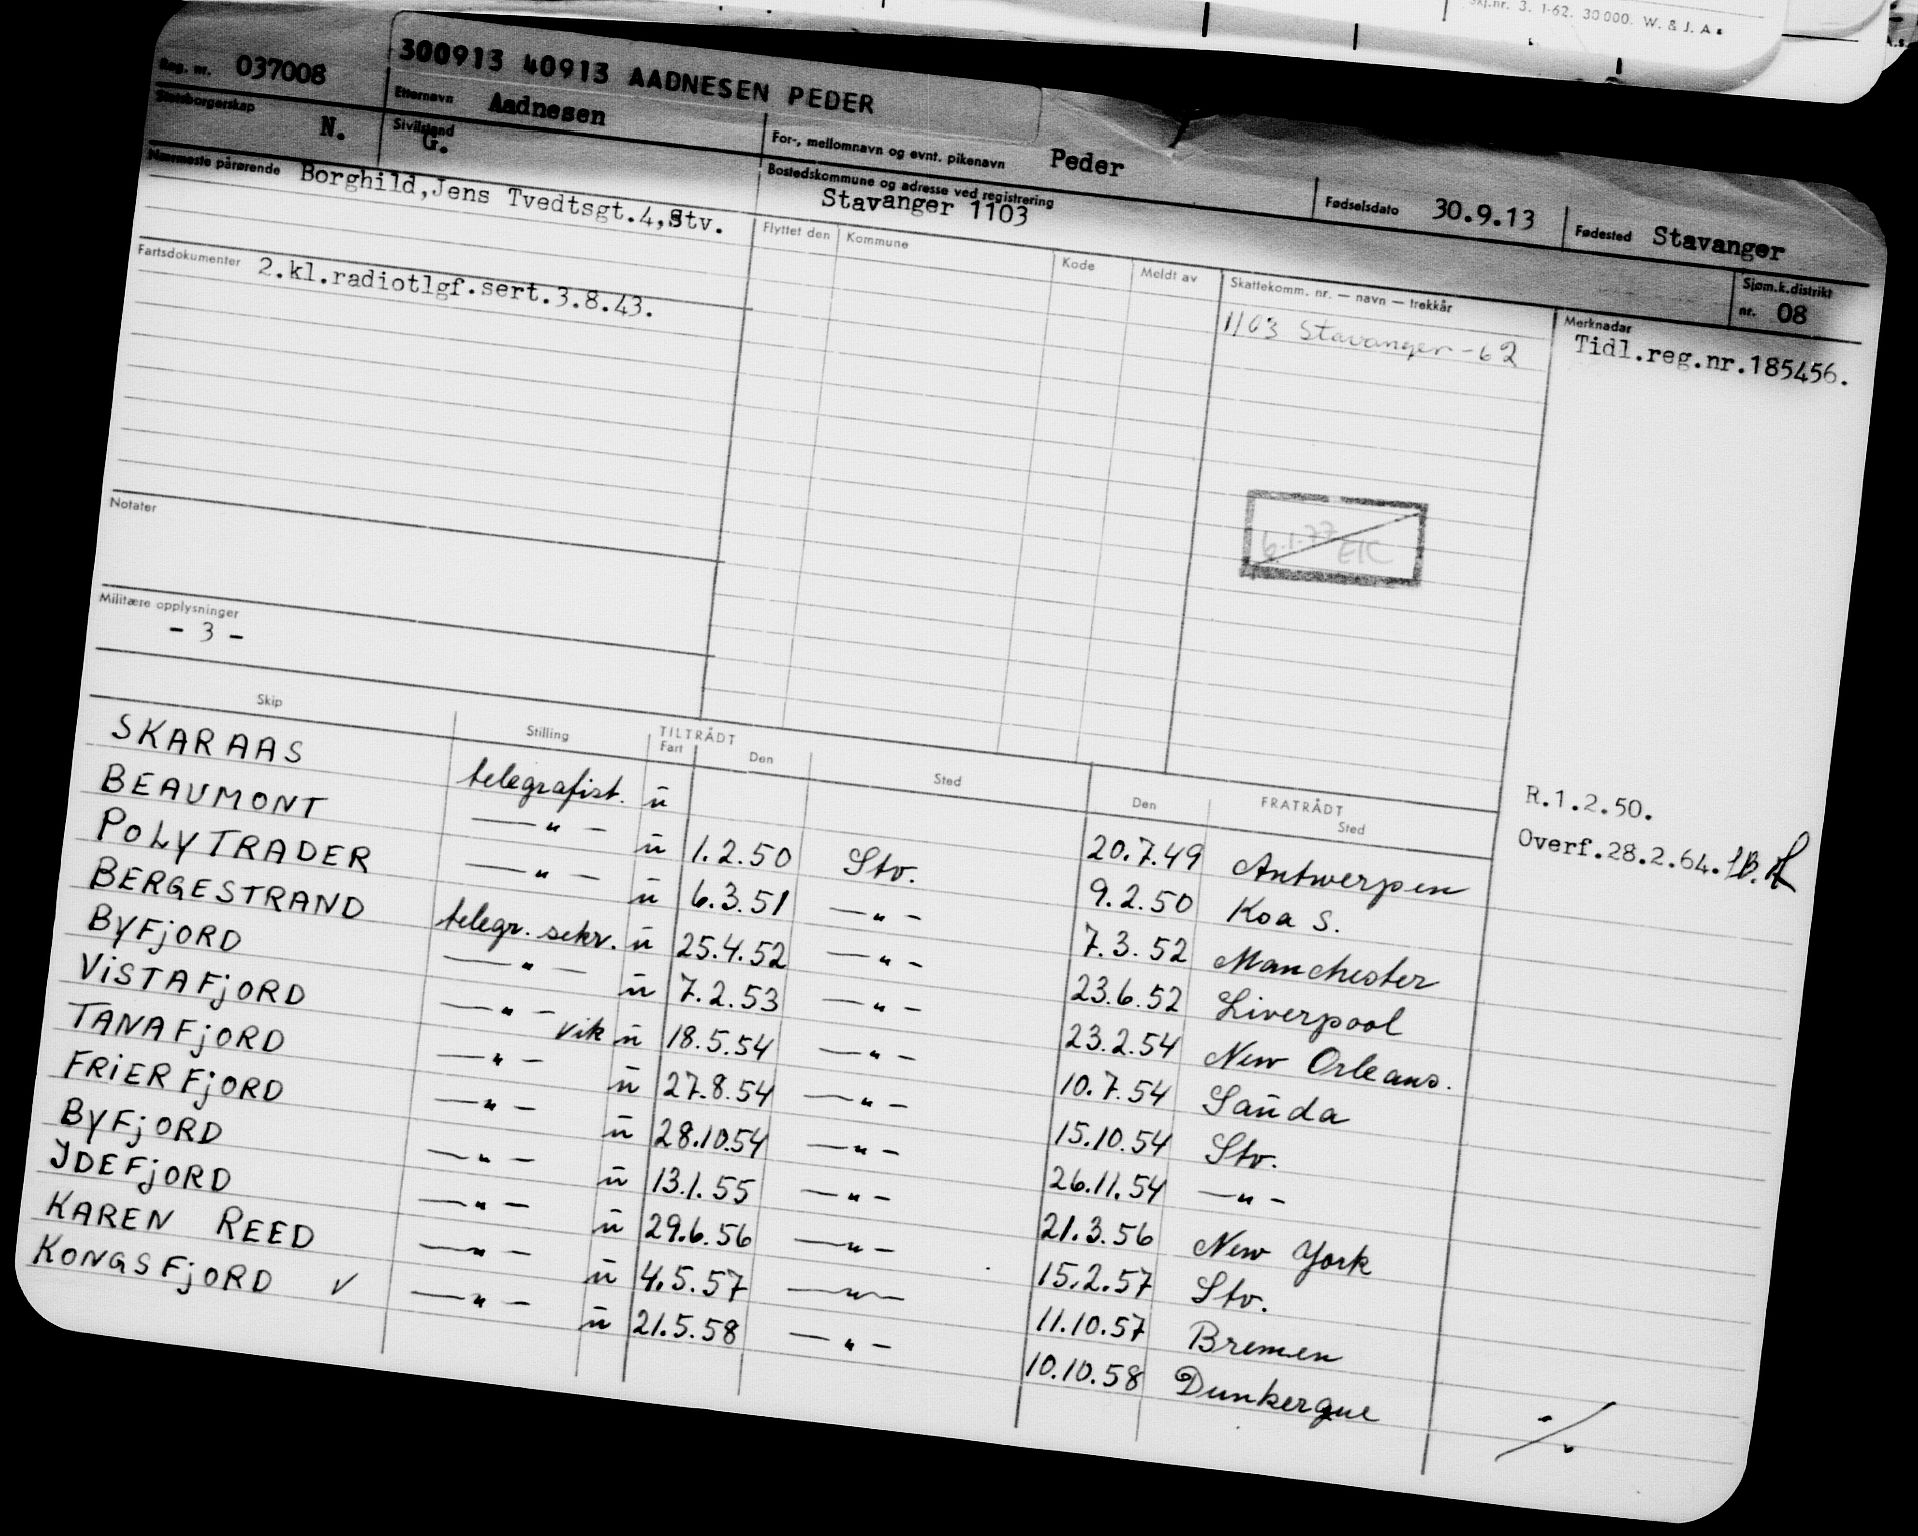 Skj.nr. 3. 1-62. 30000. W. & J. A.s
300913 40913 AADNESEN PEDER
Reg. nr. 037008
Etternavn Aadnesen
For-, mellomnavn og evnt. pikenavn Peder
Fødselsdato 30.9.13
Fødested Stavanger
Statsborgerskap N.
Sivilstand G.
Bostedskommune og adresse ved registrering Stavanger 1103
Sjøm.k.distrikt nr. 08
Nærmeste pårørende Borghild,Jens Tvedtsgt.4,Stv.
Flyttet den Kommune Kode Meldt av Skattekomm. nr. — navn — trekkår Merknader
1103 Stavanger - 62
Tidl.reg.nr.185456.
Fartsdokumenter 2.kl.radiotlgf.sert.3.8.43.
6.1.77 EK
Notater
Militære opplysninger
- 3 -
R.1.2.50.
Overf.28.2.64.
Skip Stilling TILTRÅDT Fart Den Sted FRATRÅDT Den Sted
SKARAAS telegrafist. ū 20.7.49 Antwerpen
BEAUMONT —"— ū 1.2.50 Stv. 9.2.50 Koa S.
POLYTRADER —"— ū 6.3.51 —"— 7.3.52 Manchester
BERGESTRAND telegr. sekr. ū 25.4.52 —"— 23.6.52 Liverpool
BYFJORD —"— ū 7.2.53 —"— 23.2.54 New Orleans.
VISTAFJORD —"— vik ū 18.5.54 —"— 10.7.54 Saūda
TANAFJORD —"— ū 27.8.54 —"— 15.10.54 Stv.
FRIERFJORD —"— ū 28.10.54 —"— 26.11.54 —"—
BYFJORD —"— ū 13.1.55 —"— 21.3.56 New York
IDEFJORD —"— ū 29.6.56 —"— 15.2.57 Stv.
KAREN REED —"— ū 4.5.57 —"— 11.10.57 Bremen
KONGSFJORD ✓ —"— ū 21.5.58 —"— 10.10.58 Dunkerque
./.